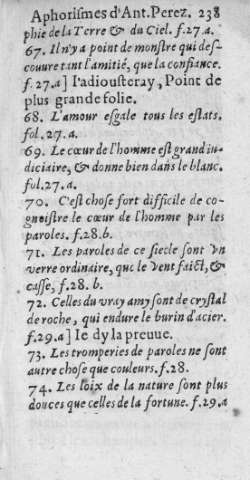 Aphorismes d'Ant. Perez. 238
phie de la Terre & du Ciel. f.27.a.
67. Il n'y a point de monstre qui des-
couure tant l'amitié, que la confiance.
f.27.a] I'adiousteray, Point de
plus grande folie.
68. L'amour esgale tous les estats.
fol.27.a.
69. Le cœur de l'homme est grand iu-
diciaire, & donne bien dans le blanc.
ful.27.a.
70. C'est chose fort difficile de co-
gnoistre le cœur de l'homme par les
paroles. f.28.b.
71. Les paroles de ce siecle sont vn
verre ordinaire, que le vent faict, &
casse, f.28.b.
72. Celles du vray amy sont de crystal
de roche, qui endure le burin d'acier.
f.29.a] Ie dy la preuue.
73. Les tromperies de paroles ne sont
autre chose que couleurs. f.28.
74. Les loix de la nature sont plus
douces que celles de la fortune. f.29.a